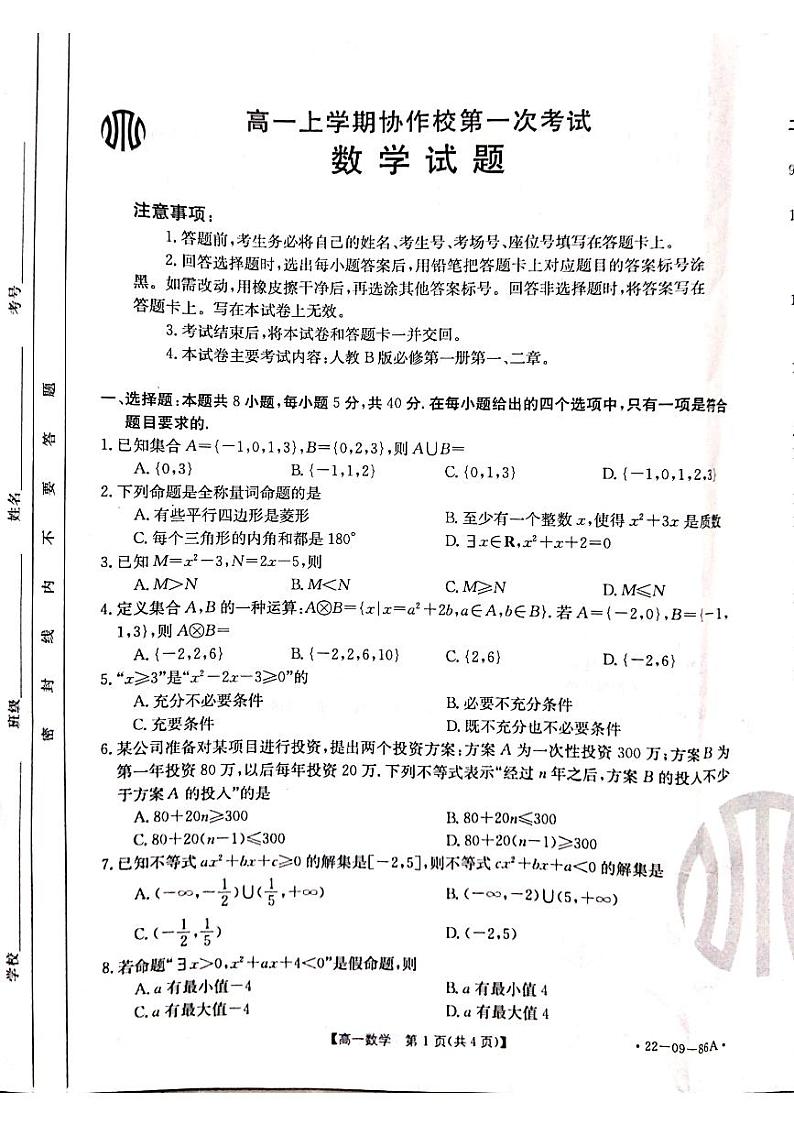 高一上学期协作校第一次考试
数学试题
注意事项:
1.答题前,考生务必将自己的姓名、考生号、考场号、座位号填写在答题卡上。
2.回答选择题时,选出每小题答案后,用铅笔把答题卡上对应题目的答案标号涂
黑。如需改动,用橡皮擦干净后,再选涂其他答案标号。回答非选择题时,将答案写在
答题卡上。写在本试卷上无效。
3.考试结束后,将本试卷和答题卡一并交回。
4.本试卷主要考试内容:人教B版必修第一册第一、二章。
一、选择题:本题共8小题,每小题5分,共40分.在每小题给出的四个选项中,只有一项是符合
题目要求的.
1.已知集合A={-1,0,1,3},B={0,2,3},则A∪B=
A.{0,3} B.{-1,1,2} C.{0,1,3} D.{-1,0,1,2,3}
2.下列命题是全称量词命题的是
A.有些平行四边形是菱形 B.至少有一个整数x,使得x²+3x是质数
C.每个三角形的内角和都是180° D.∃x∈R,x²+x+2=0
3.已知M=x²-3,N=2x-5,则
A.M>N B.M<N C.M≥N D.M≤N
4.定义集合A,B的一种运算:A⊗B={x|x=a²+2b,a∈A,b∈B}.若A={-2,0},B={-1,
1,3},则A⊗B=
A.{-2,2,6} B.{-2,2,6,10} C.{2,6} D.{-2,6}
5.“x≥3”是“x²-2x-3≥0”的
A.充分不必要条件 B.必要不充分条件
C.充要条件 D.既不充分也不必要条件
6.某公司准备对某项目进行投资,提出两个投资方案:方案A为一次性投资300万;方案B为
第一年投资80万,以后每年投资20万.下列不等式表示“经过n年之后,方案B的投入不少
于方案A的投入”的是
A.80+20n≥300 B.80+20n≤300
C.80+20(n-1)≤300 D.80+20(n-1)≥300
7.已知不等式ax²+bx+c≥0的解集是[-2,5],则不等式cx²+bx+a<0的解集是
A.(-∞,-1/2)∪(1/5,+∞) B.(-∞,-2)∪(5,+∞)
C.(-1/2,1/5) D.(-2,5)
8.若命题“∃x>0,x²+ax+4<0”是假命题,则
A.a有最小值-4 B.a有最小值4
C.a有最大值-4 D.a有最大值4
【高一数学 第1页(共4页)】
·22-09-86A·
学校 班级 姓名 考号
密封线内不要答题